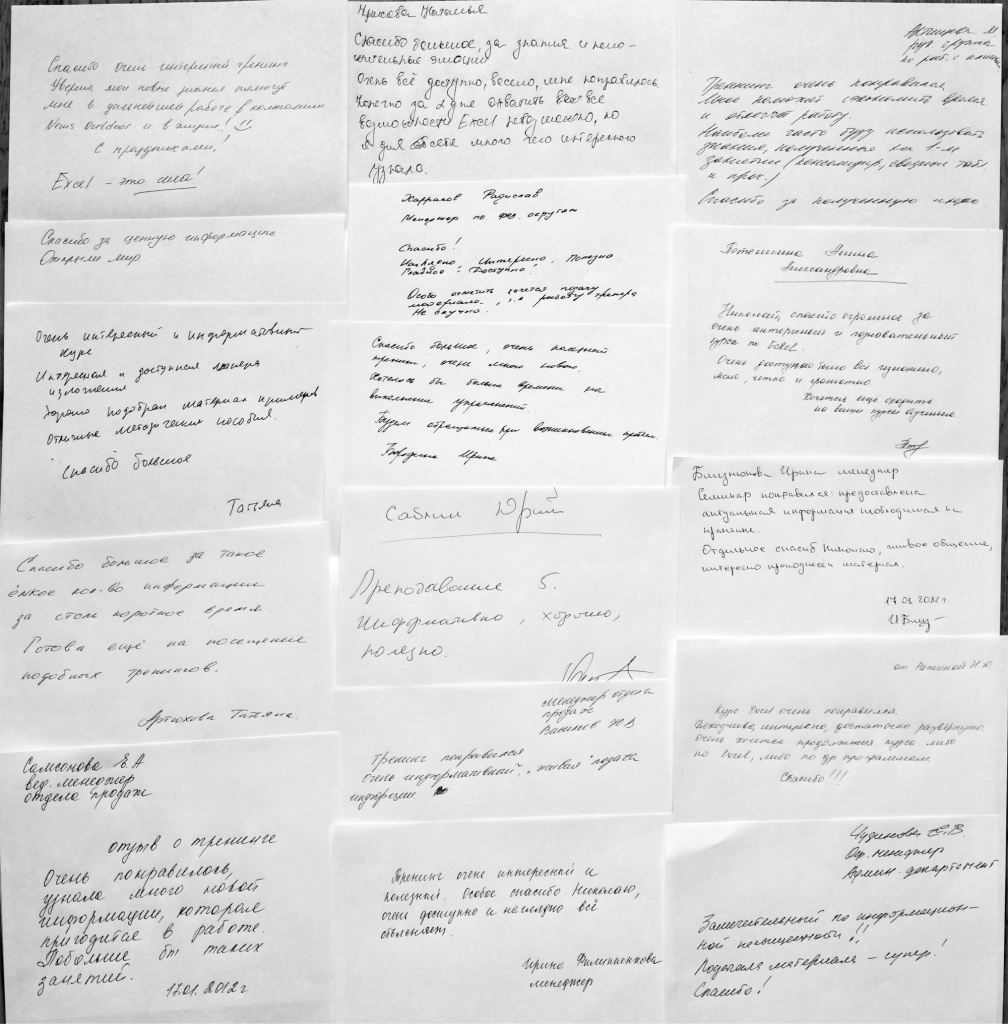 Спасибо очень интересный тренинг
Уверена мои новые знания помогут
мне в дальнейшей работе в компании
News Outdoor и в жизни!
С праздниками!
Excel - это сила!
Спасибо за ценную информацию
Открыли мир
Очень интересный и информативный
курс
Интересная и доступная манера
изложения
Хорошо подобран материал примеров
Отличные методические пособия.
Спасибо большое
Татьяна
Спасибо большое за такое
ёмкое кол-во информации
за столь короткое время.
Готова ещё на посещение
подобных тренингов.
Артюхова Татьяна.
Самсонова Е.А
вед. менеджер
отдела продаж
отзыв о тренинге
Очень понравилось,
узнала много новой
информации, которая
пригодится в работе.
Побольше бы таких
занятий.
17.01.2012г
Наталья
Спасибо большое, за знания и поло-
жительные эмоции
Очень всё доступно, весело, мне понравилось
Конечно за 2 дня охватить все
возможности Excel невозможно, но
я для себя много чего интересного
узнала.
Харрасов Радислав
Менеджер по фед. округам
Спасибо!
Наглядно, Интересно, Полезно
Главное: Доступно!
Особо отметить хочется подачу
материала, т.е работу тренера
Не скучно.
Спасибо большое, очень полезный
тренинг, очень много нового.
Хотелось бы больше времени на
выполнение упражнений.
Будем обращаться при возникновении проблем.
Бородина Ирина
Саблин Юрий
Преподавание 5.
Информативно, хорошо,
полезно.
менеджер отдела
продаж
Васильев Ю В
Тренинг понравился
Очень информативный, "живая" подача
Тренинг очень интересный и
полезный. Особое спасибо Николаю,
очень доступно и наглядно всё
объясняет.
Ирина Филипенкова
менеджер
рук. группы
по раб. с
Тренинг очень понравился
Мне поможет сэкономить время
и облегчит работу.
Наиболее часто буду использовать
знания, полученные на 1-м
занятии (консолидир, сводные табл.
и проч.)
Спасибо за полученную
Александровна
Николай, спасибо огромное за
очень интересный и познавательный
курс по Excel.
Очень доступно было всё изложено,
ясно, четко и грамотно
Хочется ещё сходить
на ваши курсы обучения
Близнюкова Ирина менеджер
Семинар понравился: предоставлена
актуальная информация необходимая на
практике.
Отдельное спасиб Николаю, живое общение,
интересно преподнесен материал.
17.01.2012г.
от Н Ю
Курс Excel очень понравился
Доходчиво, интересно, достаточно развёрнуто
Очень хочется продолжения курса либо
по Excel, либо по др программам.
Спасибо!!!
Чудинова Е.В.
Оф. менеджер
Админ. департамент
Замечательный по информацион-
ной насыщенности!!
Подача материала - супер!
Спасибо!